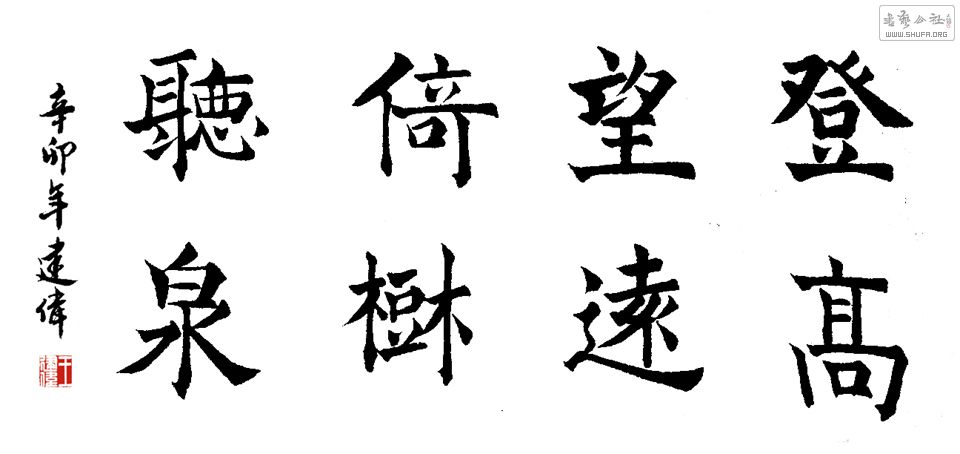 登高
望遠
倚樹
聽泉
辛卯年建偉
書藝公社
WWW.SHUFA.ORG